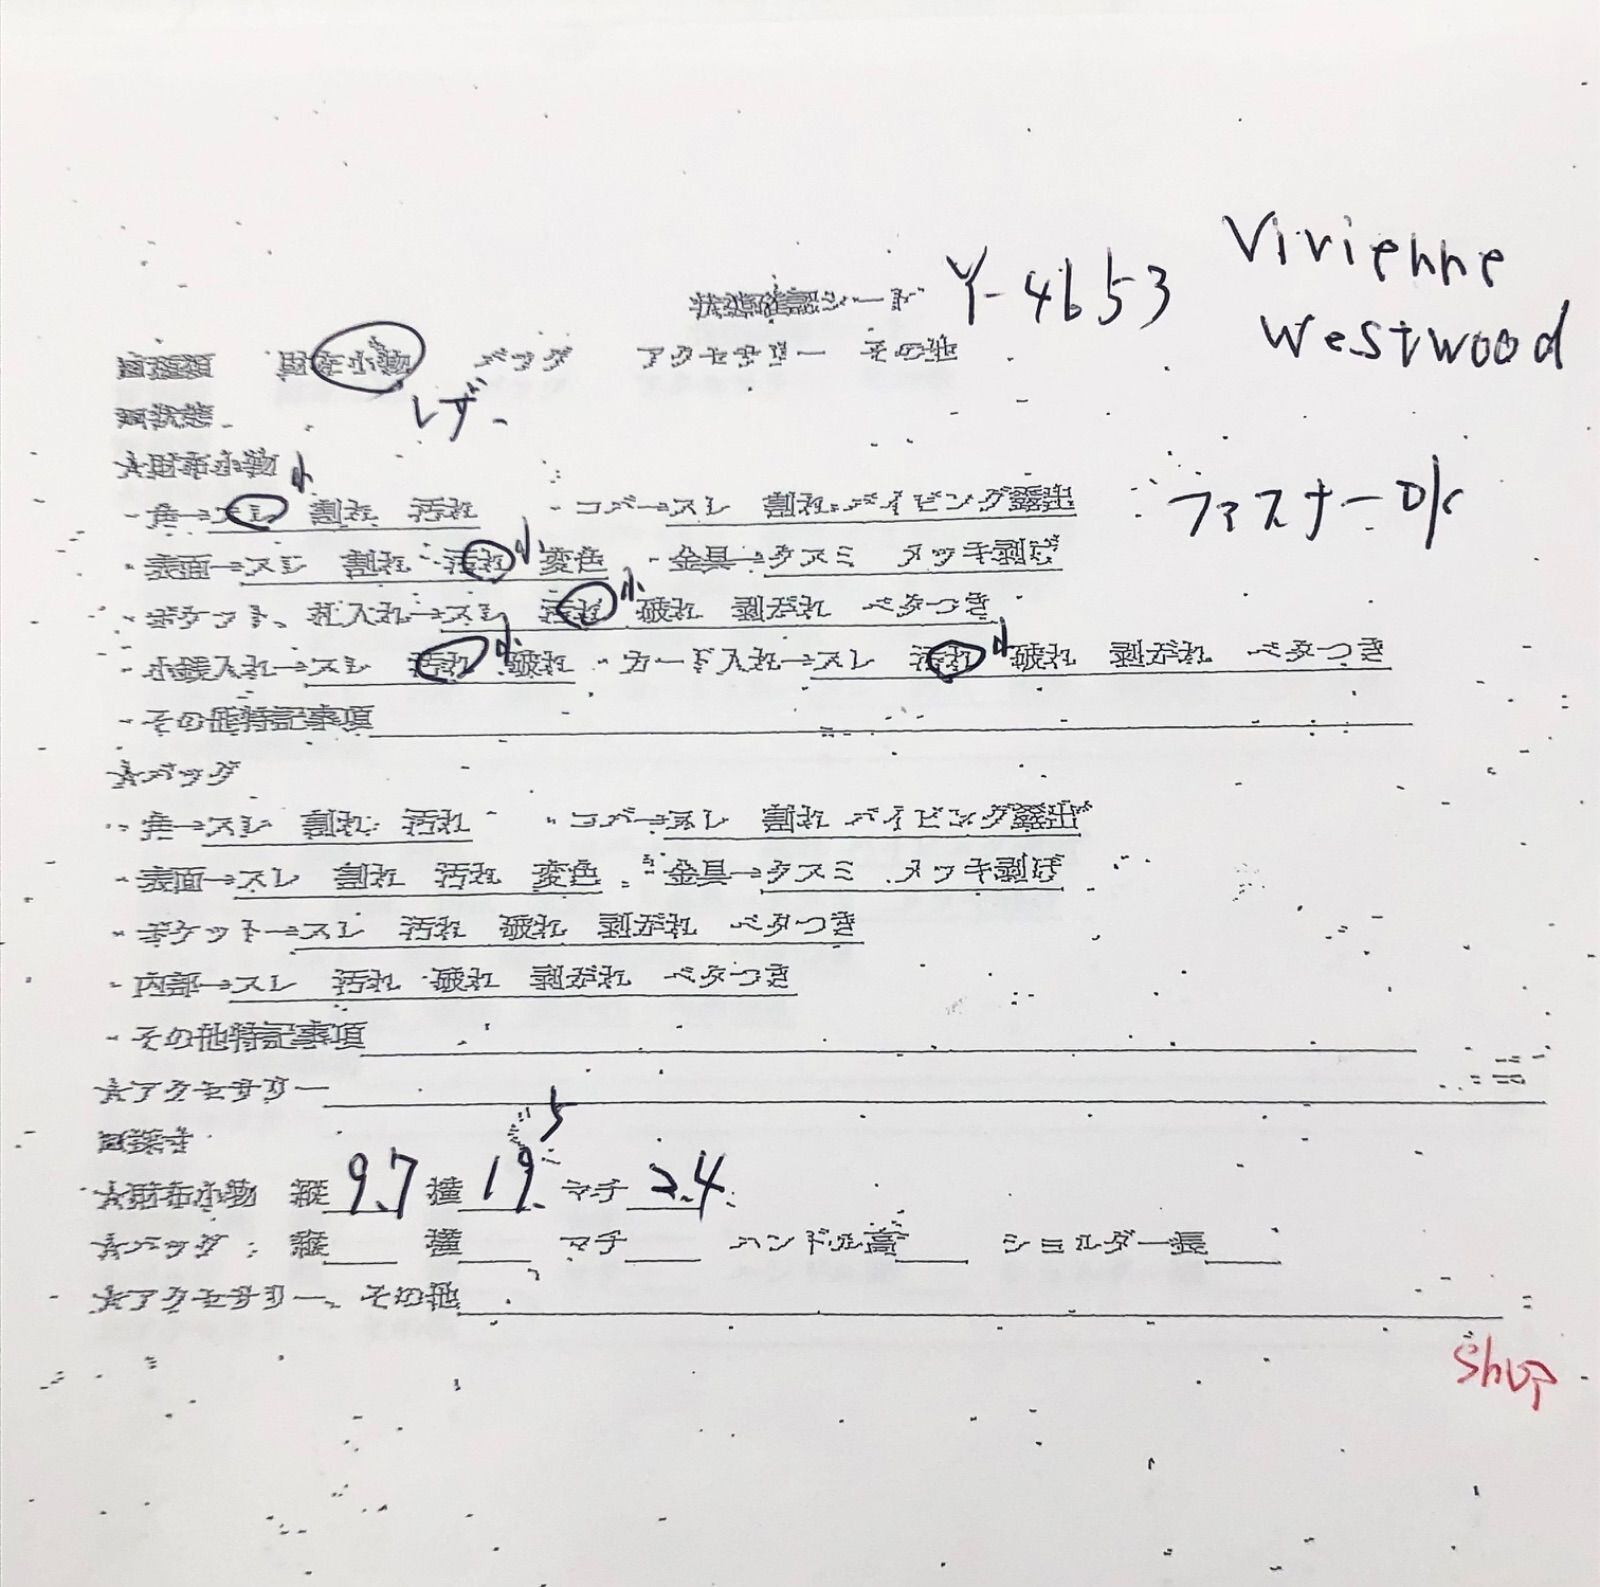 Vivienne
Westwood
状態確認シート Y-4653
■種類 財布小物 バッグ アクセサリー その他
レザー
■状態
★財布小物
・角→スレ 小 割れ 汚れ ・コバ→スレ 割れ パイピング露出
ファスナーOK
・表面→スレ 割れ 汚れ 小 変色 ・金具→クスミ メッキ剥げ
・ポケット、札入れ→スレ 汚れ 小 破れ 剥がれ ベタつき
・小銭入れ→スレ 汚れ 小 破れ ・カード入れ→スレ 汚れ 小 破れ 剥がれ ベタつき
・その他特記事項
★バッグ
・角→スレ 割れ 汚れ ・コバ→スレ 割れ パイピング露出
・表面→スレ 割れ 汚れ 変色 ・金具→クスミ メッキ剥げ
・ポケット→スレ 汚れ 破れ 剥がれ ベタつき
・内部→スレ 汚れ 破れ 剥がれ ベタつき
・その他特記事項
★アクセサリー
■採寸
★財布小物 縦 9.7 横 19.5 マチ 2.4
★バッグ 縦 横 マチ ハンドル高 ショルダー長
★アクセサリー、その他
shop